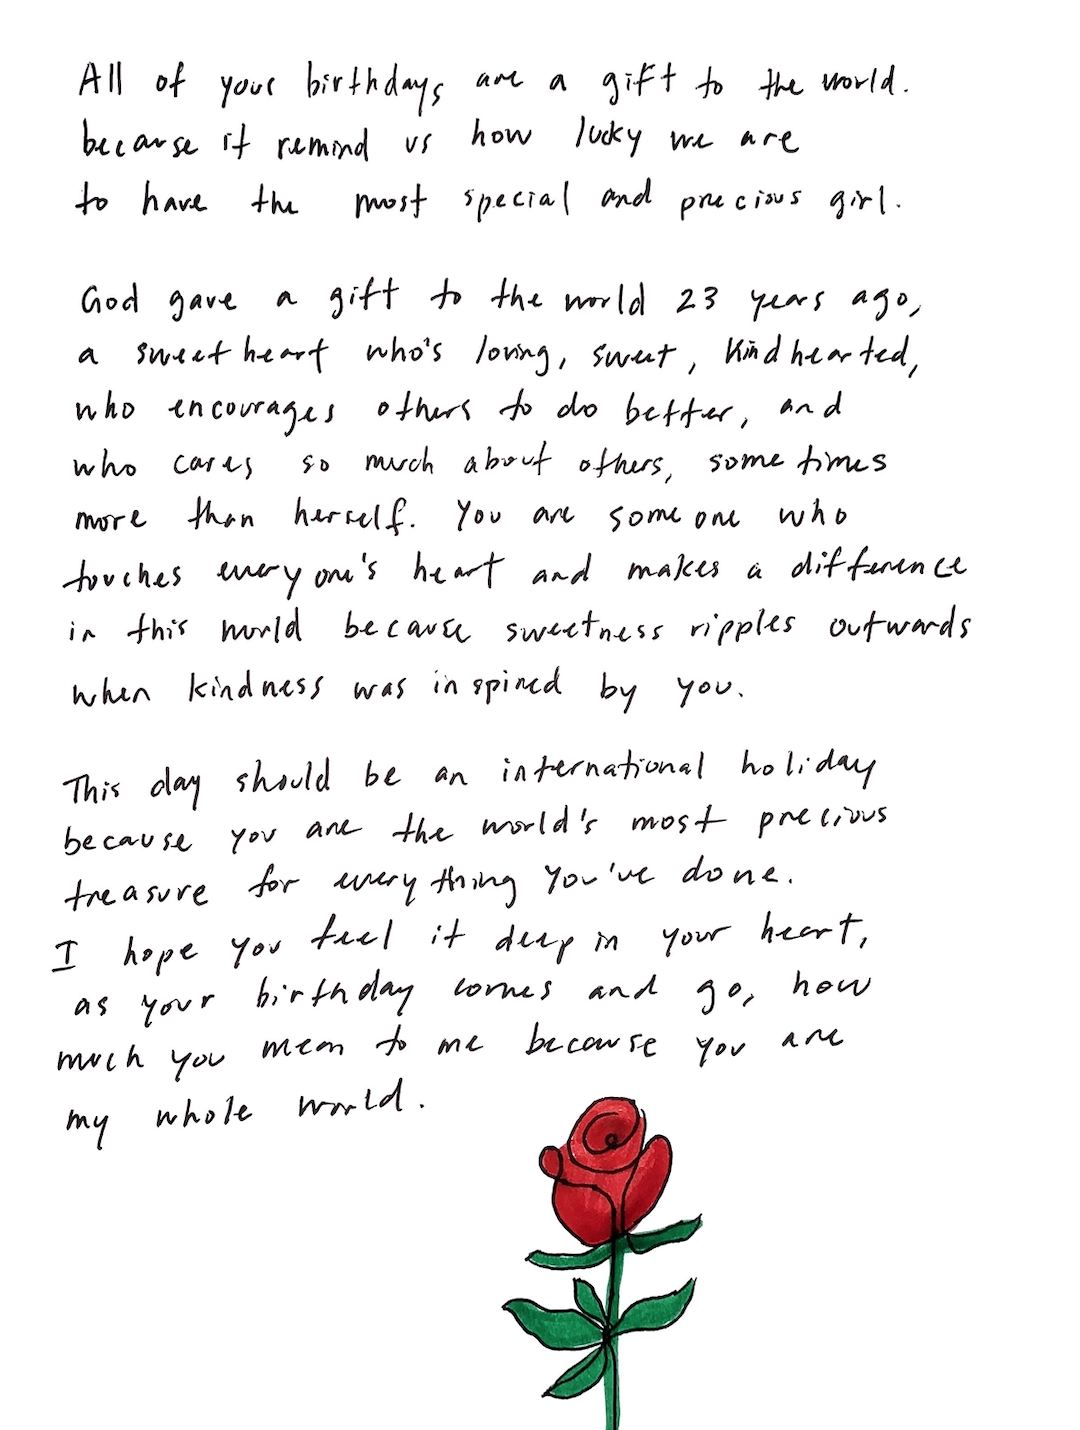 All of your birthdays are a gift to the world.
because it remind us how lucky we are
to have the most special and precious girl.
God gave a gift to the world 23 years ago,
a sweetheart who's loving, sweet, kindhearted,
who encourages others to do better, and
who cares so much about others, sometimes
more than herself. You are someone who
touches everyone's heart and makes a difference
in this world because sweetness ripples outwards
when kindness was inspired by you.
This day should be an international holiday
because you are the world's most precious
treasure for everything you've done.
I hope you feel it deep in your heart,
as your birthday comes and go, how
much you mean to me because you are
my whole world.